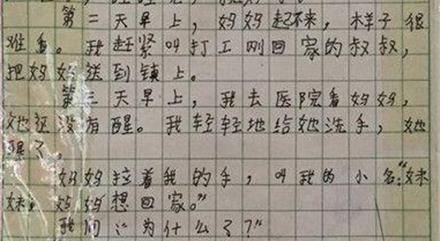 第二天早上，妈妈起不来，样子很
难看。我赶紧叫打工刚回家的叔叔，
把妈妈送到镇上。
第三天早上，我去医院看妈妈，
她还没有醒。我轻轻地给她洗手，她
醒了。
妈妈拉着我的手，叫我的小名：“妹
妹，妈妈想回家。”
我问：“为什么了？”